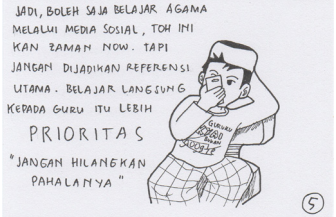 JADI, BOLEH SAJA BELAJAR AGAMA
MELALUI MEDIA SOSIAL, TOH INI
KAN ZAMAN NOW. TAPI
JANGAN DIJADIKAN REFERENSI
UTAMA. BELAJAR LANGSUNG
KEPADA GURU ITU LEBIH
PRIORITAS
"JANGAN HILANGKAN
PAHALANYA"
GURUKU
BUKAN
5